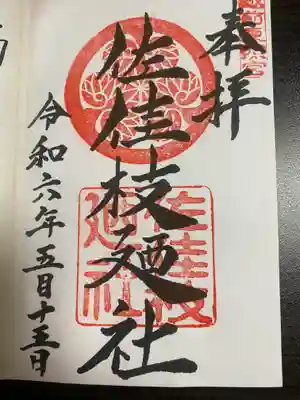 奉拝
佐佳枝廼社
佐佳枝
廼社
令和六年五月十三日